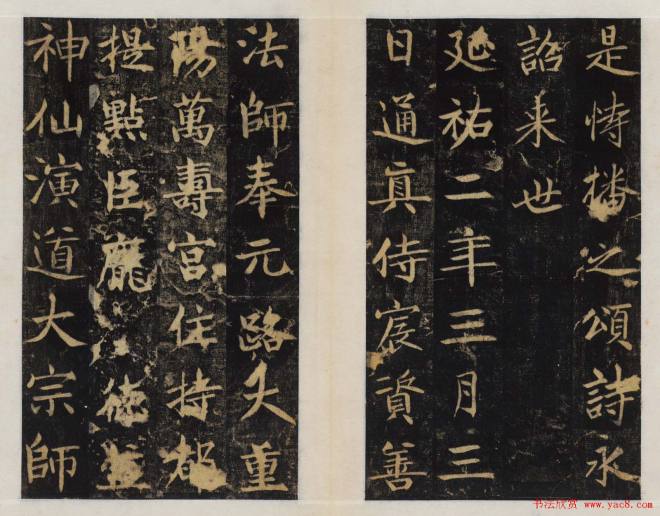 是恃播之頌詩永
詔来世
延祐二年三月三
日通真侍宸資善
法師奉元路大重
陽萬壽宮住持都
提點臣龐德益
神仙演道大宗師
书法欣赏 www.yac8.com